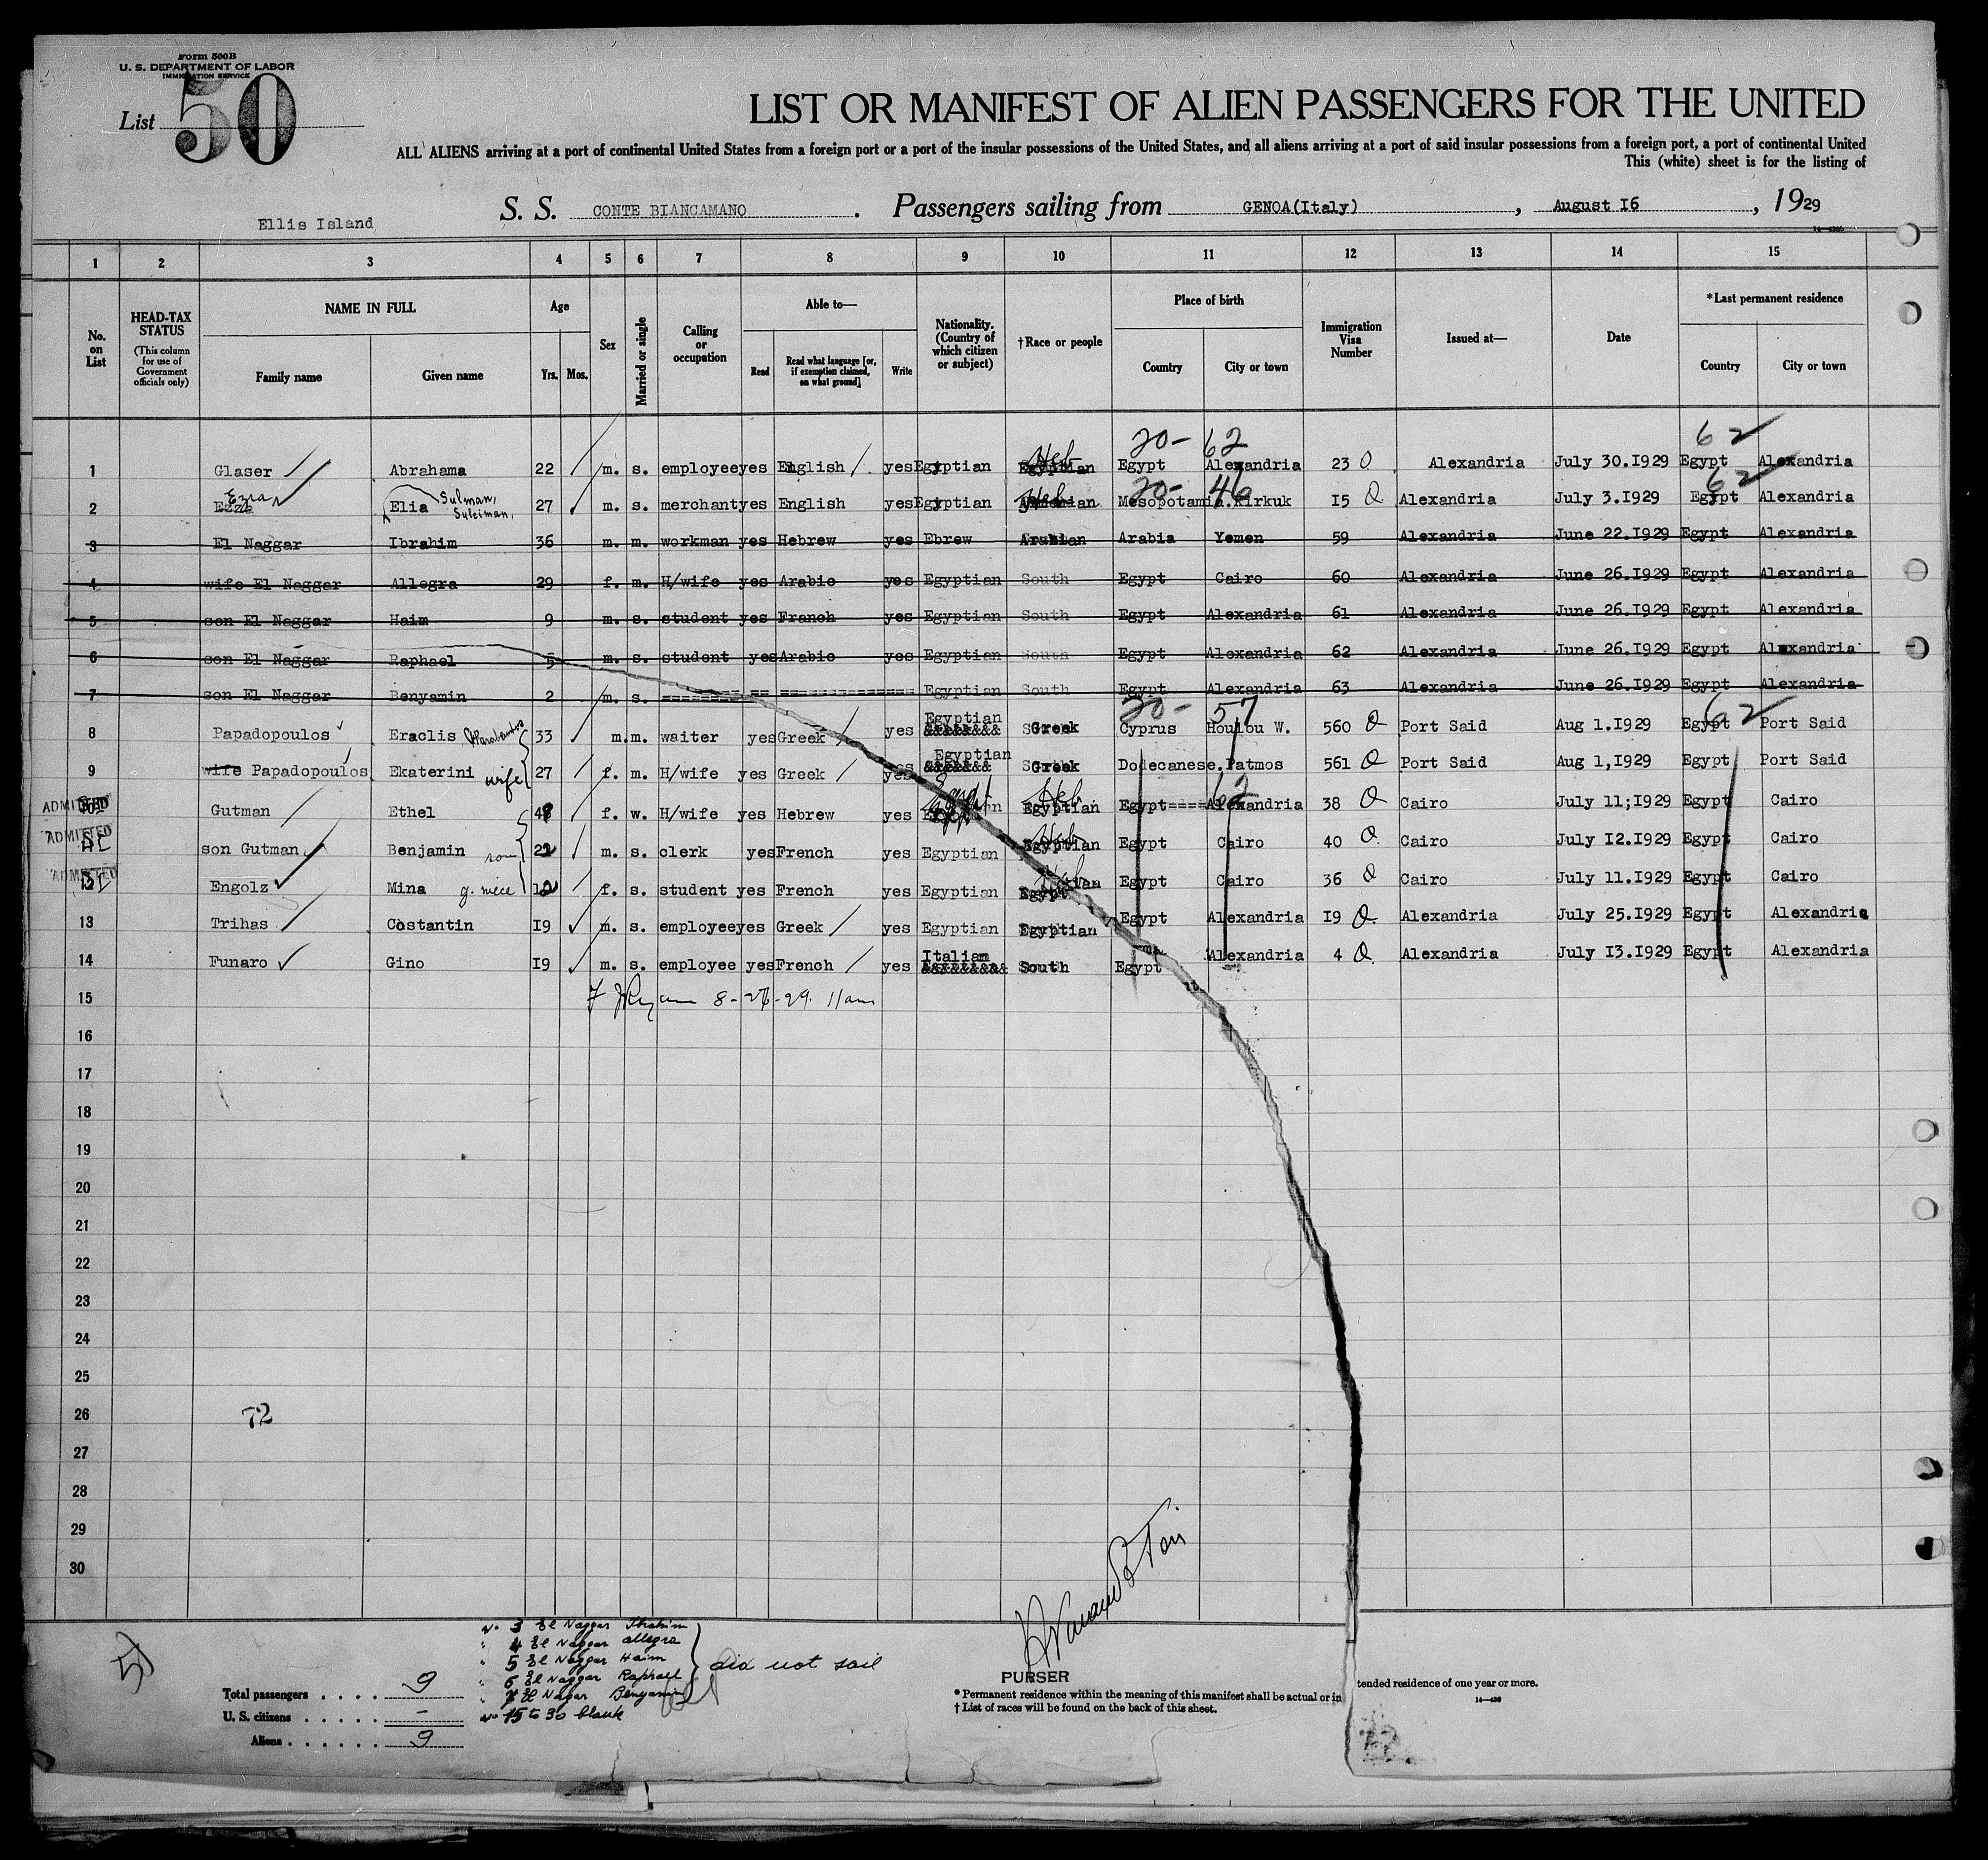 Form 500B
U. S. DEPARTMENT OF LABOR
IMMIGRATION SERVICE
List 50
LIST OR MANIFEST OF ALIEN PASSENGERS FOR THE UNITED
ALL ALIENS arriving at a port of continental United States from a foreign port or a port of the insular possessions of the United States, and all aliens arriving at a port of said insular possessions from a foreign port, a port of continental United
This (white) sheet is for the listing of
Ellis Island
S. S. CONTE BIANCAMANO. Passengers sailing from GENOA(Italy), August I6, 1929
1 2 3 4 5 6 7 8 9 10 11 12 13 14 15
No. on List
HEAD-TAX STATUS (This column for use of Government officials only)
NAME IN FULL Family name Given name
Age Yrs. Mos.
Sex
Married or single
Calling or occupation
Able to— Read Read what language [or, if exemption claimed, on what ground] Write
Nationality. (Country of which citizen or subject)
†Race or people
Place of birth Country City or town
Immigration Visa Number
Issued at—
Date
*Last permanent residence Country City or town
20- 62 62
1 Glaser Abrahama 22 m. s. employee yes English yes Egyptian Egyptian Heb Egypt Alexandria 23 Alexandria July 30.I929 Egypt Alexandria
Ezra Sulman, Suleiman, 20- 46 62
2 Elia 27 m. s. merchant yes English yes Egyptian Heb Mesopotamia.Kirkuk I5 Alexandria July 3.I929 Egypt Alexandria
3 El Naggar Ibrahim 36 m. m. workman yes Hebrew yes Ebrew Arabian Arabia Yemen 59 Alexandria June 22.I929 Egypt Alexandria
4 wife El Naggar Allegra 29 f. m. H/wife yes Arabic yes Egyptian South Egypt Cairo 60 Alexandria June 26.I929 Egypt Alexandria
5 son El Naggar Haim 9 m. s. student yes Franch yes Egyptian South Egypt Alexandria 61 Alexandria June 26.I929 Egypt Alexandria
6 son El Naggar Raphael 5 m. s. student yes Arabic yes Egyptian South Egypt Alexandria 62 Alexandria June 26.I929 Egypt Alexandria
7 son El Naggar Benyamin 2 m. s. Egyptian South Egypt Alexandria 63 Alexandria June 26.I929 Egypt Alexandria
20- 57 62
8 Papadopoulos Eraclis 33 m. m. waiter yes Greek yes Egyptian Greek Cyprus Houlou W. 560 Port Said Aug 1.I929 Egypt Port Said
9 wife Papadopoulos Ekaterini wife 27 f. m. H/wife yes Greek yes Egyptian Greek Dodecanese.Patmos 561 Port Said Aug 1,I929 Egypt Port Said
ADMITTED Gutman Ethel 48 f. w. H/wife yes Hebrew yes Heb Egyptian Egypt==== Alexandria 62 38 Cairo July 11;I929 Egypt Cairo
ADMITTED son Gutman Benjamin son 22 m. s. clerk yes French yes Egyptian Heb Egyptian Egypt Cairo 40 Cairo July I2.I929 Egypt Cairo
ADMITTED Engolz Mina g. niece f. s. student yes French yes Egyptian Egypt Cairo 36 Cairo July 11.I929 Egypt Cairo
13 Trihas Costantin I9 m. s. employee yes Greek yes Egyptian Egyptian Egypt Alexandria I9 Alexandria July 25.I929 Egypt Alexandria
14 Funaro Gino I9 m. s. employee yes French yes Italian South Egypt Alexandria 4 Alexandria July I3.I929 Egypt Alexandria
15 8-26-29. 11am
16
17
18
19
20
21
22
23
24
25
26 72
27
28
29
30
No 3 El Naggar Ibrahim
" 4 El Naggar allegra
" 5 El Naggar Haim
" 6 El Naggar Raphael
" 7 El Nagar Benyamin
did not sail
No 15 to 30 blank
Total passengers . . . . 9
U. S. citizens . . . . . –
Aliens . . . . . . 9
PURSER
* Permanent residence within the meaning of this manifest shall be actual or intended residence of one year or more.
† List of races will be found on the back of this sheet.
14—430